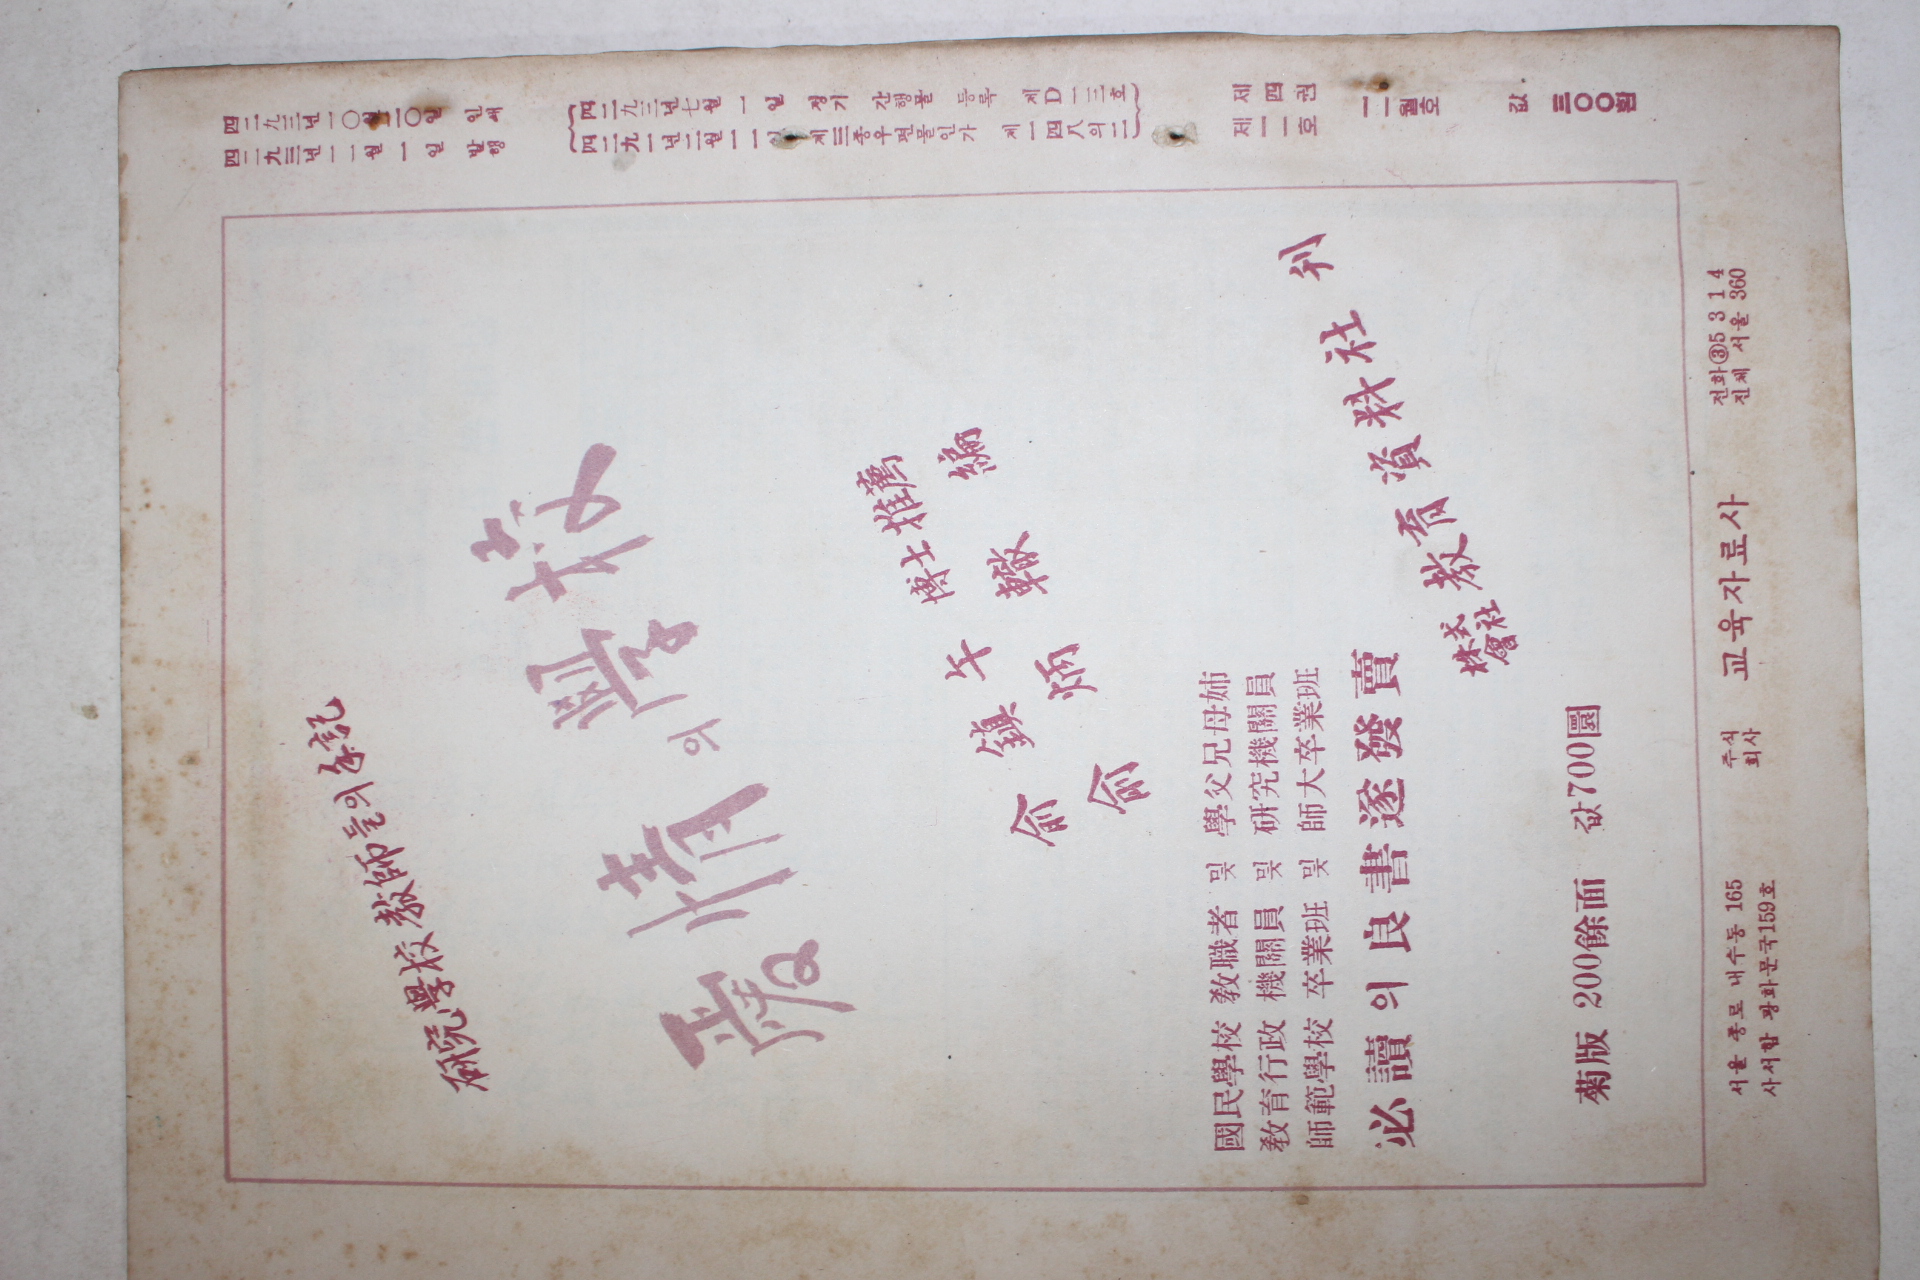 研究學校教師들의手記
愛情의學校
俞鎭午 博士推薦
俞炳轍 編
國民學校 敎職者 및 學父兄母姉
敎育行政 機關員 및 研究機關員
師範學校 卒業班 및 師大卒業班
必讀의良書遂發賣
株式會社 敎育資料社 刊
菊版 200餘面 값700圜
서울 종로 내수동 165
사서함 광화문국159호
주식회사 교육자료사
전화③5314
진체 서울 360
四二九三년一〇월二〇일 인쇄
四二九三년一一월一일 발행
四二九三년七월一일 정기 간행물 등록 제D一三호
四二九一년二월一一일 제三종우편물인가 제一四八의二
제四권
제一一호
一一월호
값 三〇〇환